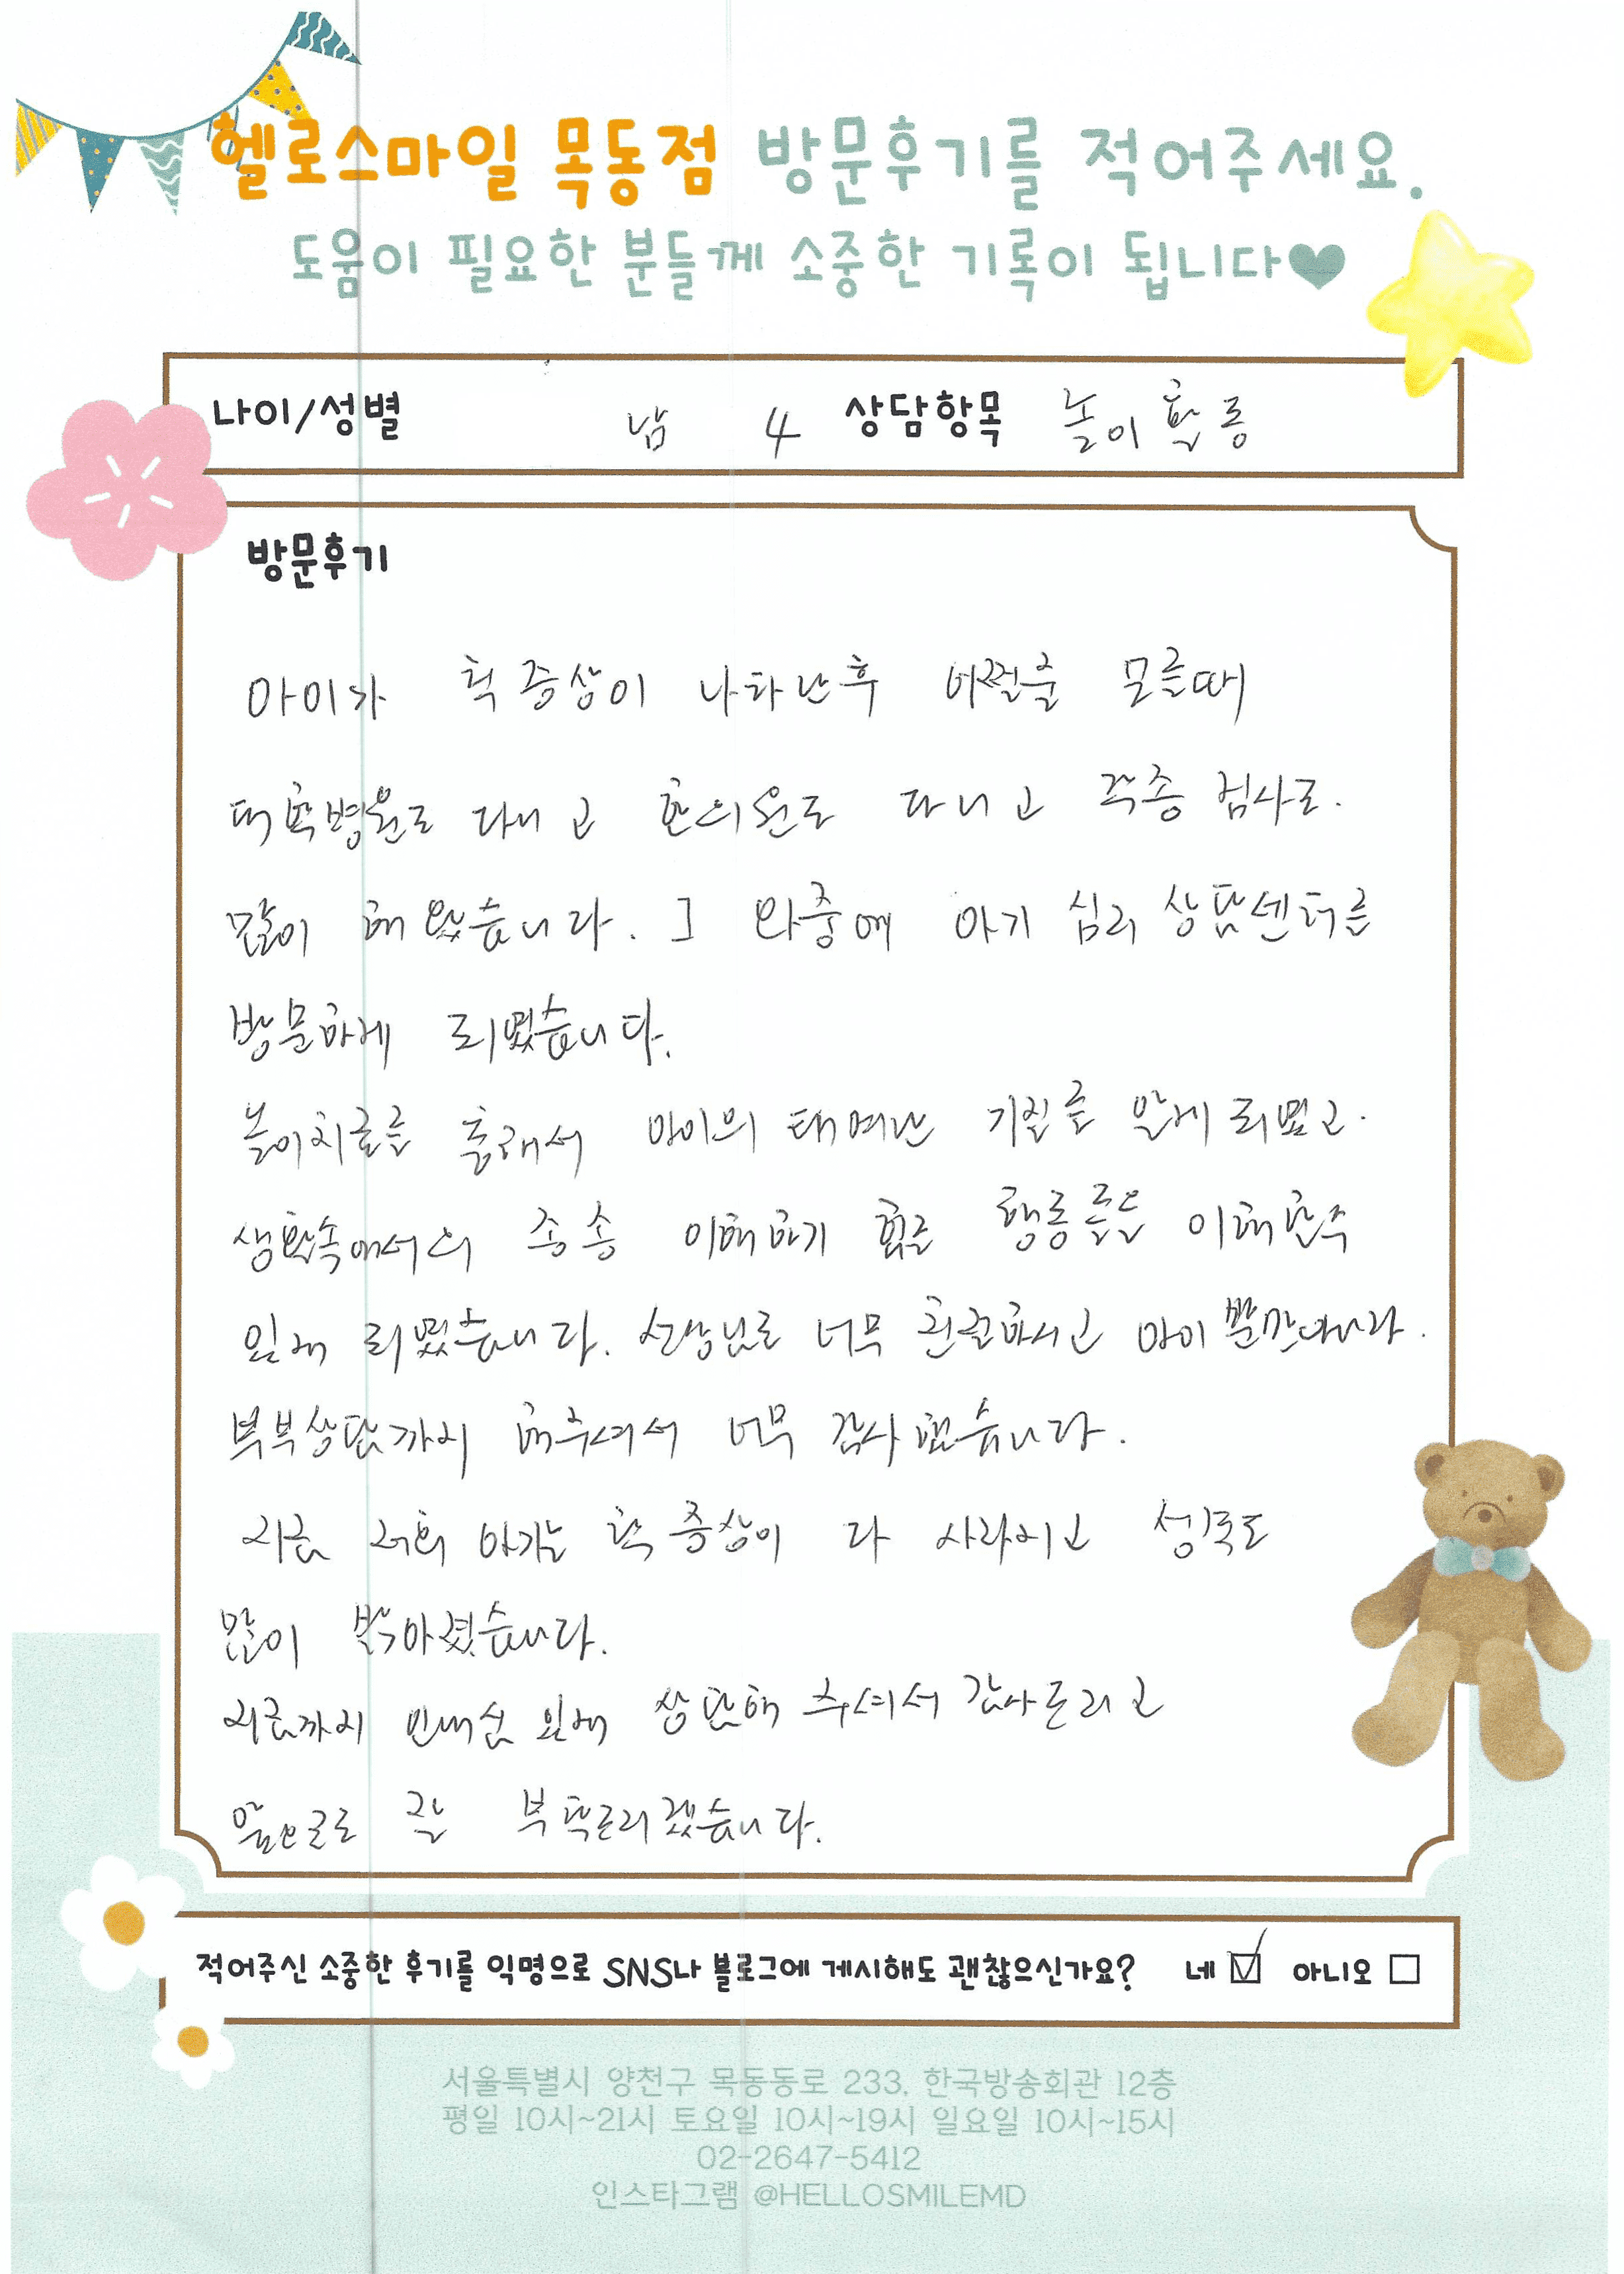 헬로스마일 목동점 방문후기를 적어주세요.
도움이 필요한 분들께 소중한 기록이 됩니다♥
나이/성별 남 4 상담항목 놀이활동
방문후기
아이가 틱 증상이 나타난후 어쩔줄 모를때
대학병원도 다니고 한의원도 다니고 각종 검사도.
많이 해 왔습니다. 그 와중에 아기 심리 상담센터를
방문하게 되였습니다.
놀이치료를 통해서 아이의 태여난 기질를 알게 되였고.
생활속에서의 종종 이해하기 힘든 행동들을 이해할수
있게 되였습니다. 선생님도 너무 친절하시고 아이 뿐만아니라.
부부상담까지 해주셔서 너무 감사했습니다.
지금 저희 아기는 틱 증상이 다 사라지고 성격도
많이 밝아졌습니다.
지금까지 인내심 있게 상담해 주셔서 감사드리고
앞으로도 잘 부탁드리겠습니다.
적어주신 소중한 후기를 익명으로 SNS나 블로그에 게시해도 괜찮으신가요? 네 ☑ 아니오 ☐
서울특별시 양천구 목동동로 233, 한국방송회관 12층
평일 10시~21시 토요일 10시~19시 일요일 10시~15시
02-2647-5412
인스타그램 @HELLOSMILEMD